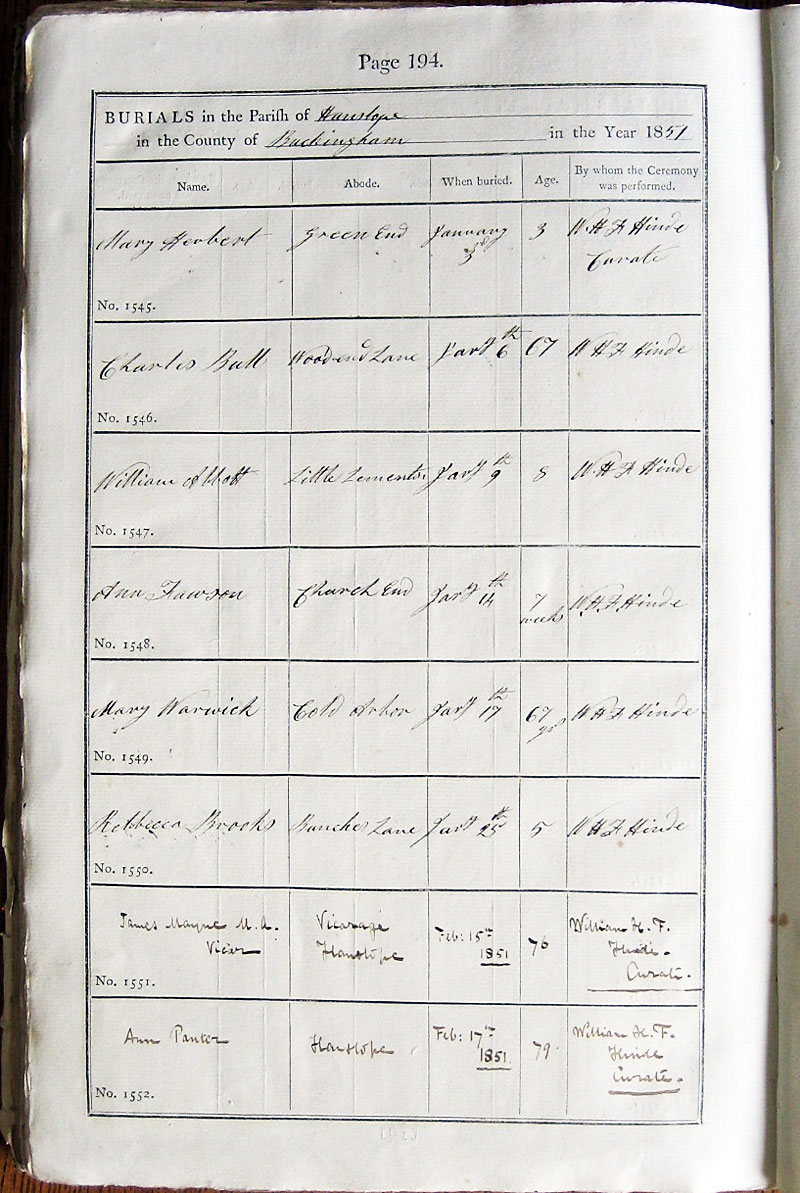 Page 194.
BURIALS in the Pariſh of Hanslope
in the County of Buckingham in the Year 1851
Name. Abode. When buried. Age. By whom the Ceremony was performed.
Mary Herbert Green End January 3rd 3 W. H F Hinde Curate
No. 1545.
Charles Bull Wood end Lane Jany 6th 67 W H F Hinde
No. 1546.
William Abbott Little Jany 9th 8 W. H F Hinde
No. 1547.
Ann Church End Jany 14th 7 weeks W H F Hinde
No. 1548.
Mary Warwick Cold Arbor Jany 17th 67 yrs W H F Hinde
No. 1549.
Rebbecca Brooks Lane Jany 25th 5 W H F Hinde
No. 1550.
James Mayne M. A. Vicar Vicarage Hanslope Feb: 15th 1851 76 William H. F. Hinde. Curate.
No. 1551.
Ann Panter Hanslope Feb: 17th 1851 79 William H. F. Hinde Curate.
No. 1552.